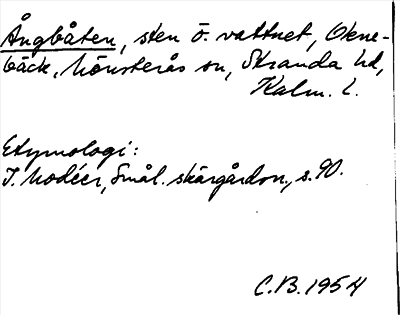 Ångbåten, sten ö. vattnet, Okne-
bäck, Mönsterås sn, Stranda hd,
Kalm. l.
Etymologi:
I. Modéer, Smål. skärgårdsn., s. 90.
C.B. 1954